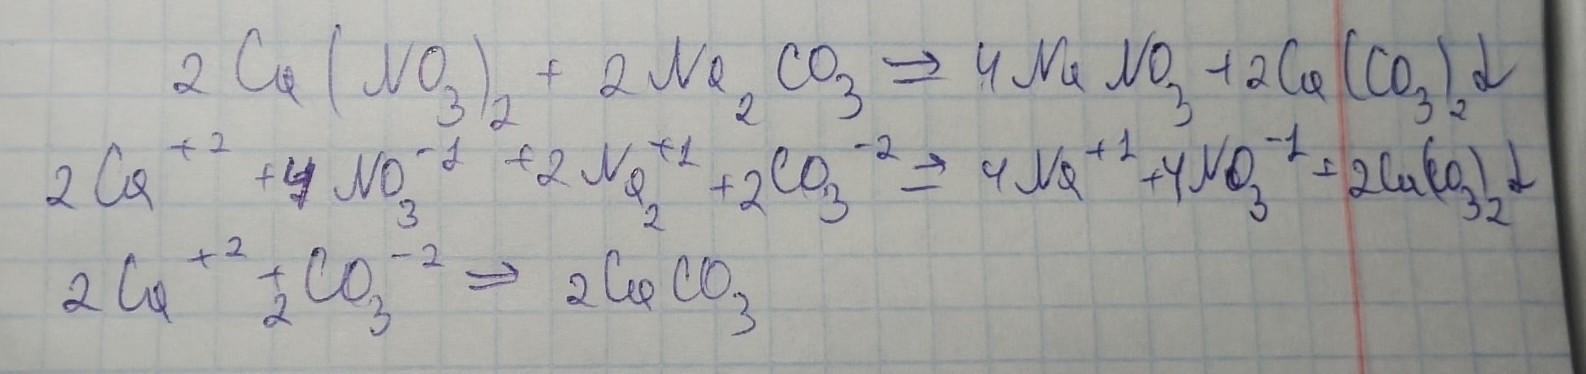 2Ca(NO₃)₂ + 2Na₂CO₃ ⇒ 4NaNO₃ + 2Ca(CO₃)₂↓
2Ca⁺² + 4NO₃⁻¹ + 2Na₂⁺¹ + 2CO₃⁻² ⇒ 4Na⁺¹ + 4NO₃⁻¹ + 2Ca(CO₃)₂↓
2Ca⁺² + 2CO₃⁻² ⇒ 2CaCO₃